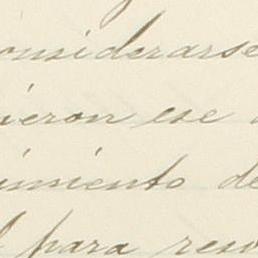 considerarse
ieron ese
imiento de
para reso